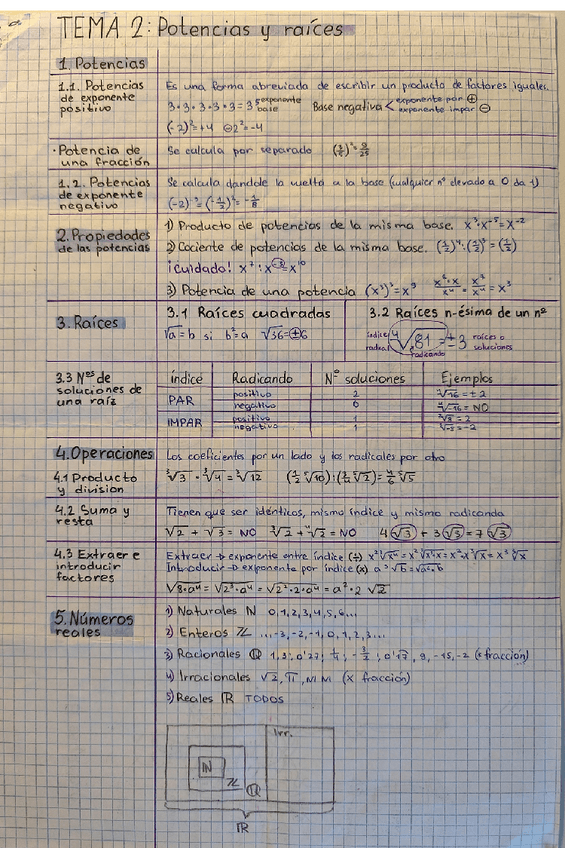 TEMA 2: Potencias y raíces
1. Potencias
1.1. Potencias de exponente positivo
Es una forma abreviada de escribir un producto de factores iguales.
3·3·3·3·3=3 exponente base
Base negativa < exponente par ⊕ exponente impar ⊖
(-2)²=+4 ⊖2²=-4
· Potencia de una fracción
Se calcula por separado (3/5)²=9/25
1.2. Potencias de exponente negativo
Se calcula dandole la vuelta a la base (cualquier nº elevado a 0 da 1)
2. Propiedades de las potencias
1) Producto de potencias de la misma base. x³·x⁻⁵=x⁻²
2) Cociente de potencias de la misma base.
¡Cuidado!
3) Potencia de una potencia
3. Raíces
3.1 Raíces cuadradas
√a=b si b²=a √36=±6
3.2 Raíces n-ésima de un nº
índice 4 √81=±3 raíces o soluciones
radical radicando
3.3 Nºs de soluciones de una raíz
índice Radicando Nº soluciones Ejemplos
PAR positivo 2 ⁴√16=±2
negativo 0 ⁴√-16=NO
IMPAR positivo ³√8=2
negativo 1 ³√-8=-2
4. Operaciones
Los coeficientes por un lado y los radicales por otro
4.1 Producto y division
³√3·³√4=³√12
4.2 Suma y resta
Tienen que ser idénticos, mismo índice y mismo radicando
√2+√3=NO ³√2+⁴√2=NO 4√3+3√3=7√3
4.3 Extraer e introducir factores
Extraer → exponente entre índice (÷)
Introducir → exponente por índice (x)
√8·a⁴=√2³·a⁴=√2²·2·a⁴=a²·2√2
5. Números reales
1) Naturales ℕ 0,1,2,3,4,5,6...
2) Enteros ℤ ...-3,-2,-1,0,1,2,3...
3) Racionales ℚ
4) Irracionales √2, π, (x fracción)
5) Reales ℝ TODOS
Irr.
ℕ
ℤ
ℚ
ℝ